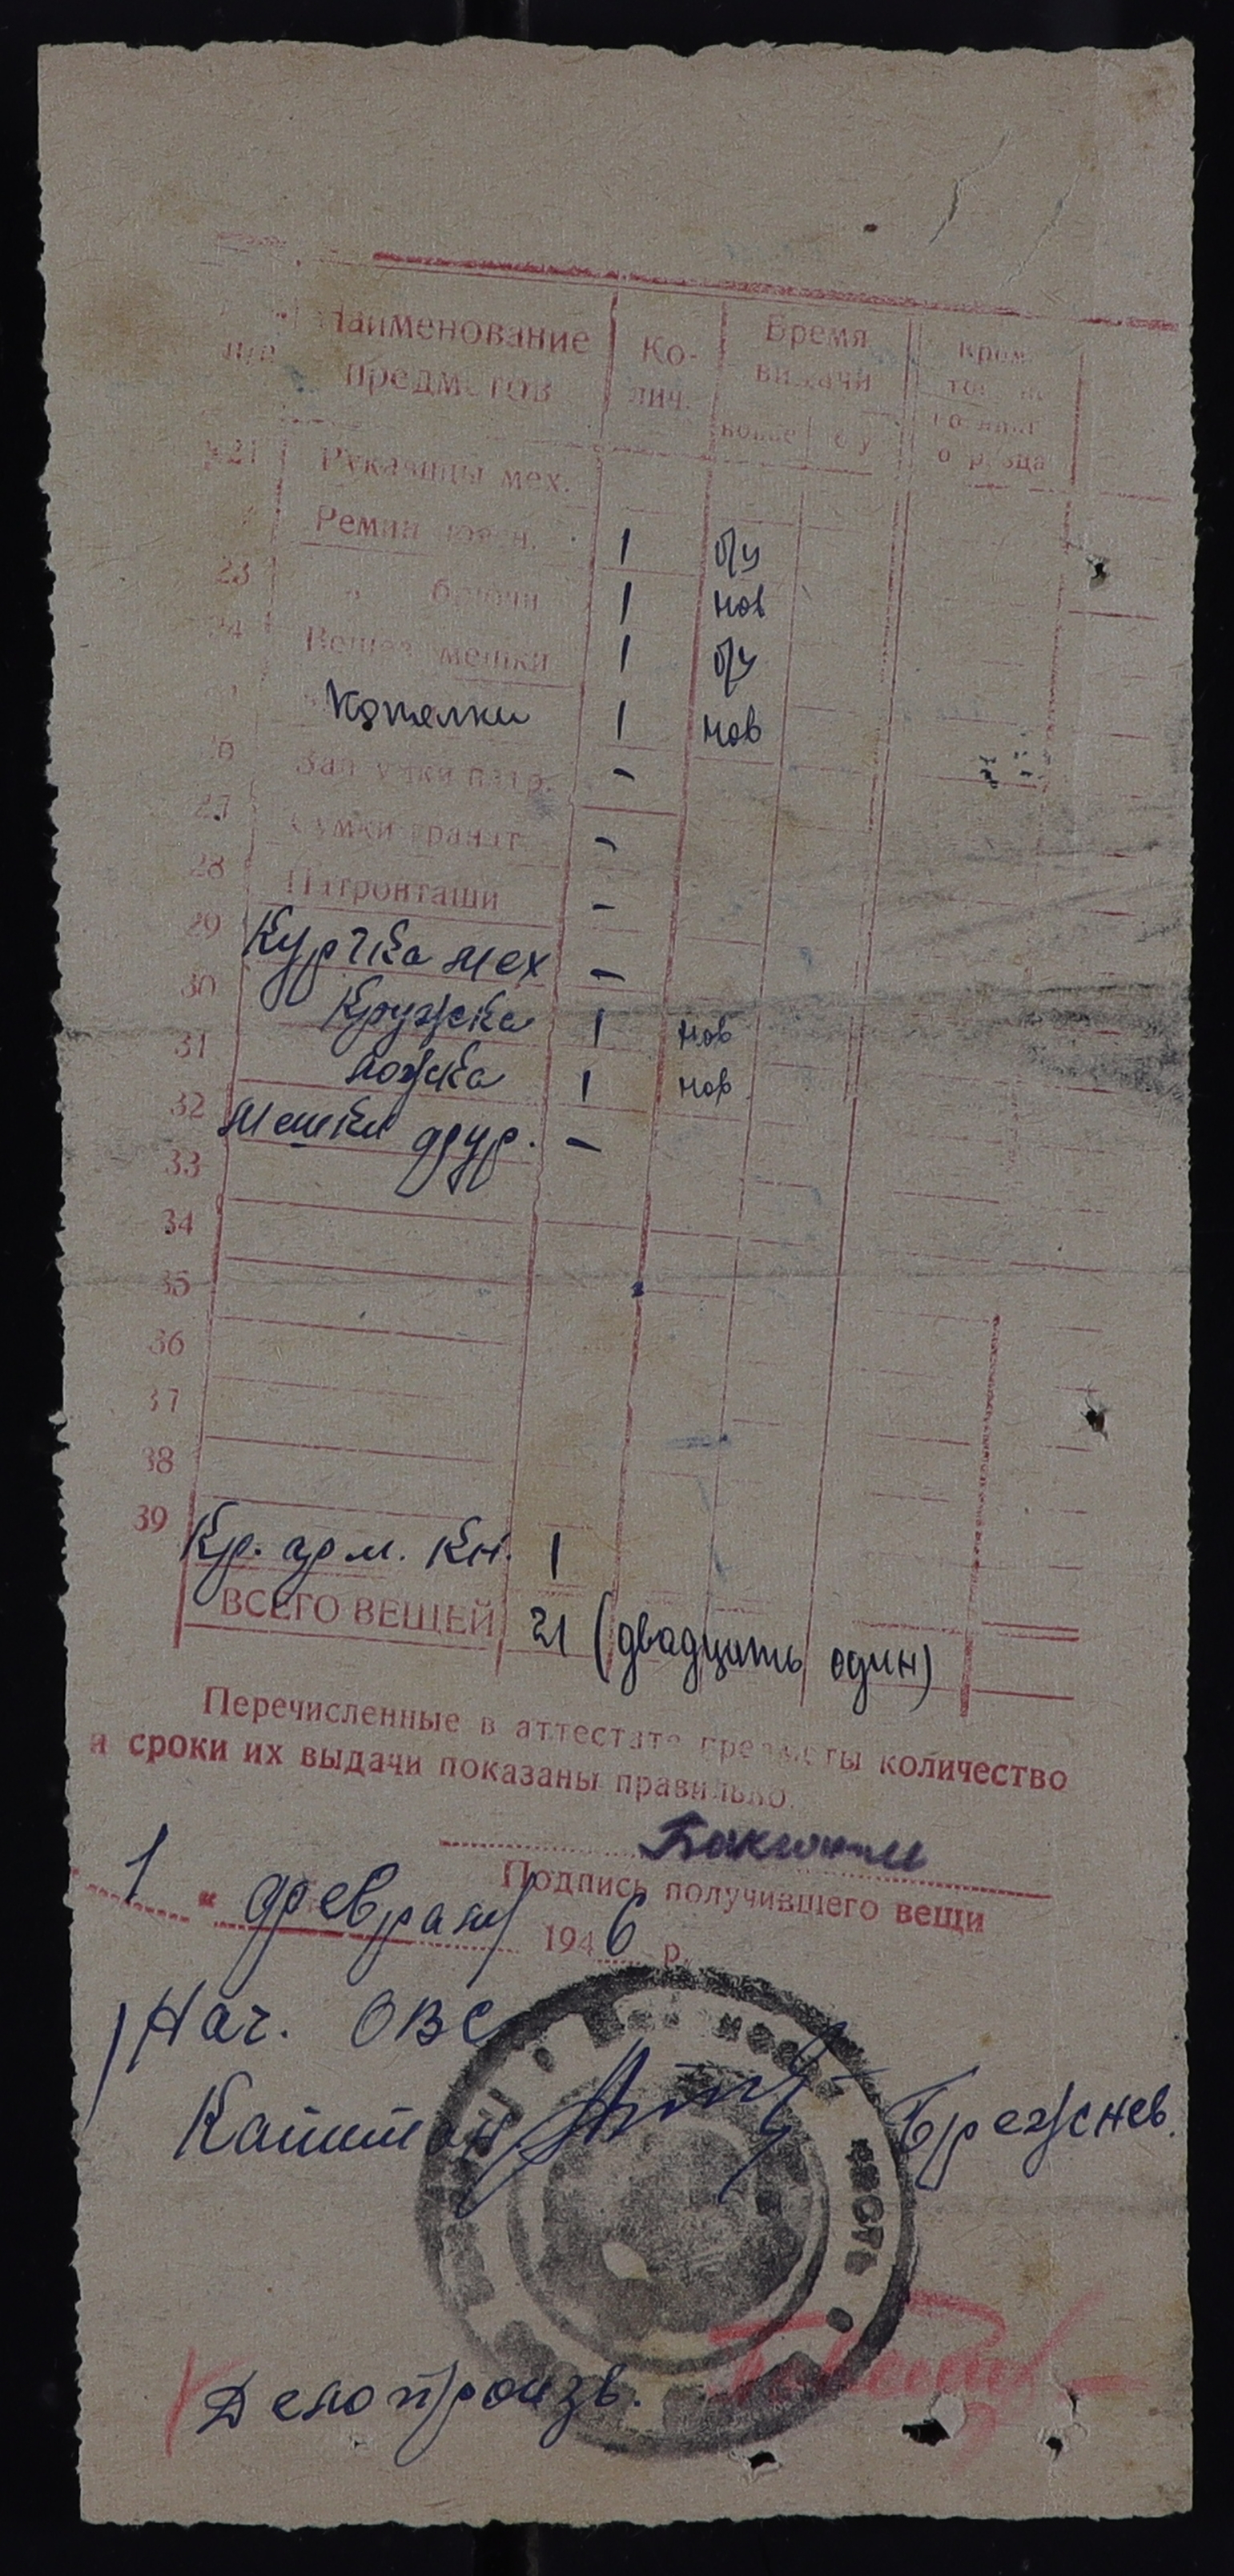 Наименование Ко- Время
предметов лич. выдачи
21 Рукавицы мех.
Ремни поясн. 1 б/у
23 " брючн 1 нов
24 Вещев. мешки 1 б/у
Котелки 1 нов
патр. -
27 Сумки гранат -
28 Патронташи -
29 Куртка мех -
30 Кружка 1 нов
31 Ложка 1 нов
32 Мешки фур. -
33
34
35
36
37
38
39 Кр. арм. кн. 1
ВСЕГО ВЕЩЕЙ 21 (двадцать один)
Перечисленные в аттестате предметы количество
и сроки их выдачи показаны правильно.
Подпись получившего вещи
1 " февраля 1946 р.
Нач. ОВС
Капитан Брежнев.
Делопроизв.